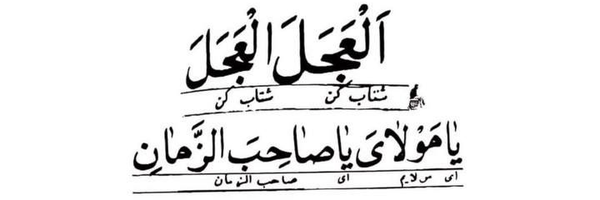 اَلْعَجَلَ الْعَجَلَ
شتاب کن شتاب کن
يٰا مَوْلاٰىَ يٰا صٰاحِبَ الزَّمٰانِ
ای مولایم ای صاحب الزمان